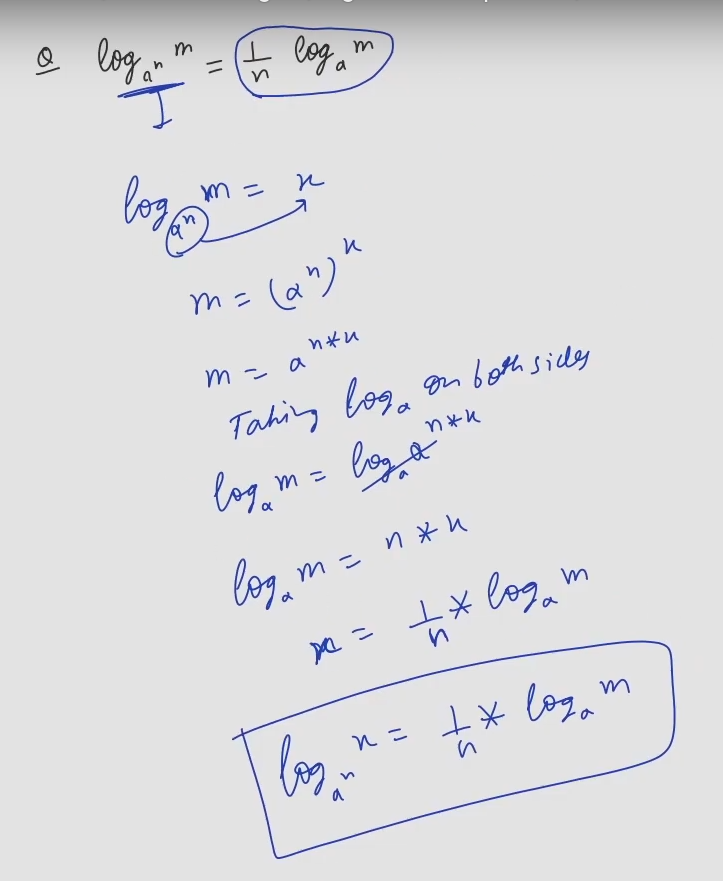 Q log_{a^n} m = 1/n log_a m
log_{a^n} m = x
m = (a^n)^x
m = a^{n*x}
Taking log_a on both sides
log_a m = log_a a^{n*x}
log_a m = n * x
x = 1/n * log_a m
log_{a^n} x = 1/n * log_a m